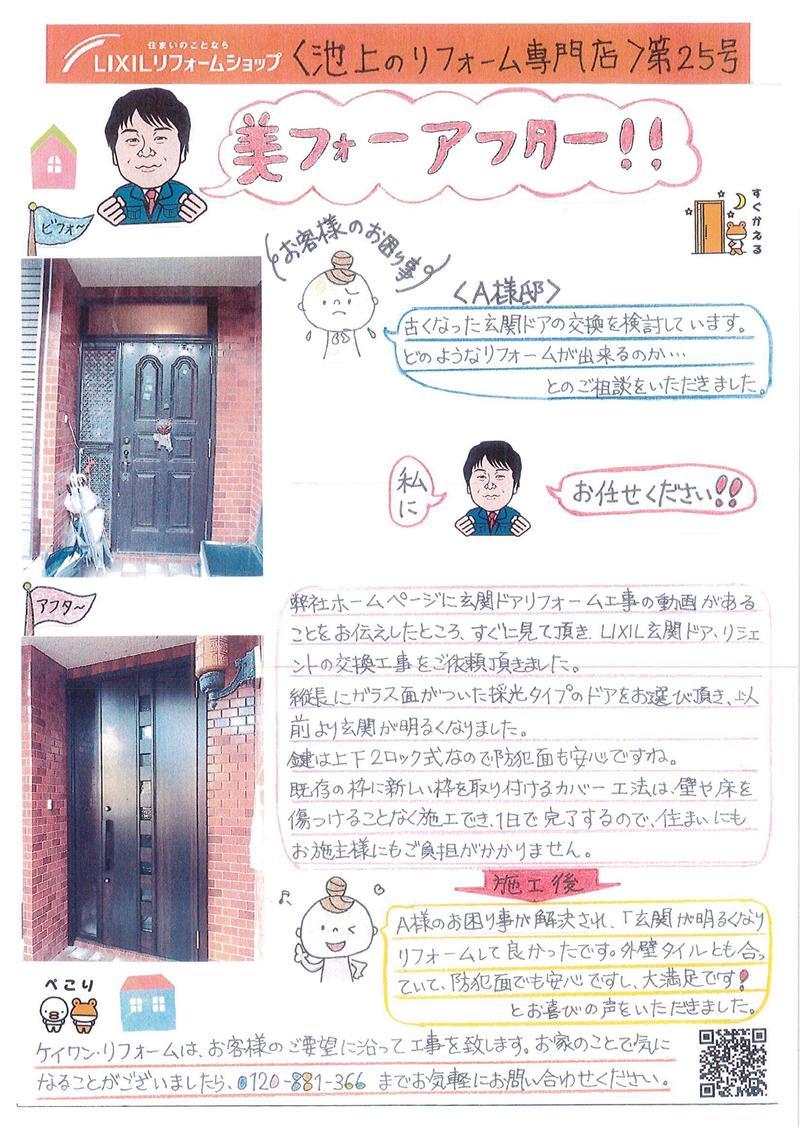 住まいのことなら
LIXILリフォームショップ 〈池上のリフォーム専門店〉第25号
美フォーアフター!!
ビフォ〜
すぐかえる
お客様のお困り事
〈A様邸〉
古くなった玄関ドアの交換を検討しています。
どのようなリフォームが出来るのか…
とのご相談をいただきました。
私に
お任せください!!
アフタ〜
弊社ホームページに玄関ドアリフォーム工事の動画がある
ことをお伝えしたところ、すぐに見て頂き、LIXIL玄関ドア、リシェ
ントの交換工事をご依頼頂きました。
縦長にガラス面がついた採光タイプのドアをお選び頂き、以
前より玄関が明るくなりました。
鍵は上下2ロック式なので防犯面も安心ですね。
既存の枠に新しい枠を取り付けるカバー工法は、壁や床を
傷つけることなく施工でき、1日で完了するので、住まいにも
お施主様にもご負担がかかりません。
施工後
A様のお困り事が解決され、「玄関が明るくなり
リフォームして良かったです。外壁タイルとも合っ
ていて、防犯面でも安心ですし、大満足です!
とお喜びの声をいただきました。
ぺこり
ケイワン・リフォームは、お客様のご要望に沿って工事を致します。お家のことで気に
なることがございましたら、0120-881-366 までお気軽にお問い合わせください。